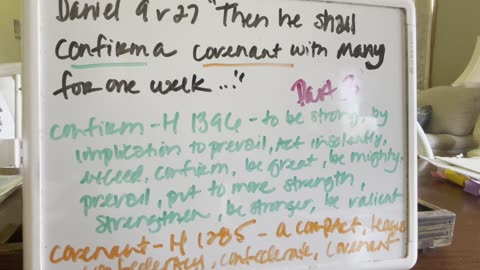 Daniel 9 v 27 "Then he shall
confirm a covenant with many
for one week ..."
Part 3
confirm - H 1396 - to be strong, by
implication to prevail, act insolently,
exceed, confirm, be great, be mighty,
prevail, put to more strength,
strengthen, be stronger, be valient
covenant - H 1285 - a compact, league
confederacy, confederate, covenant